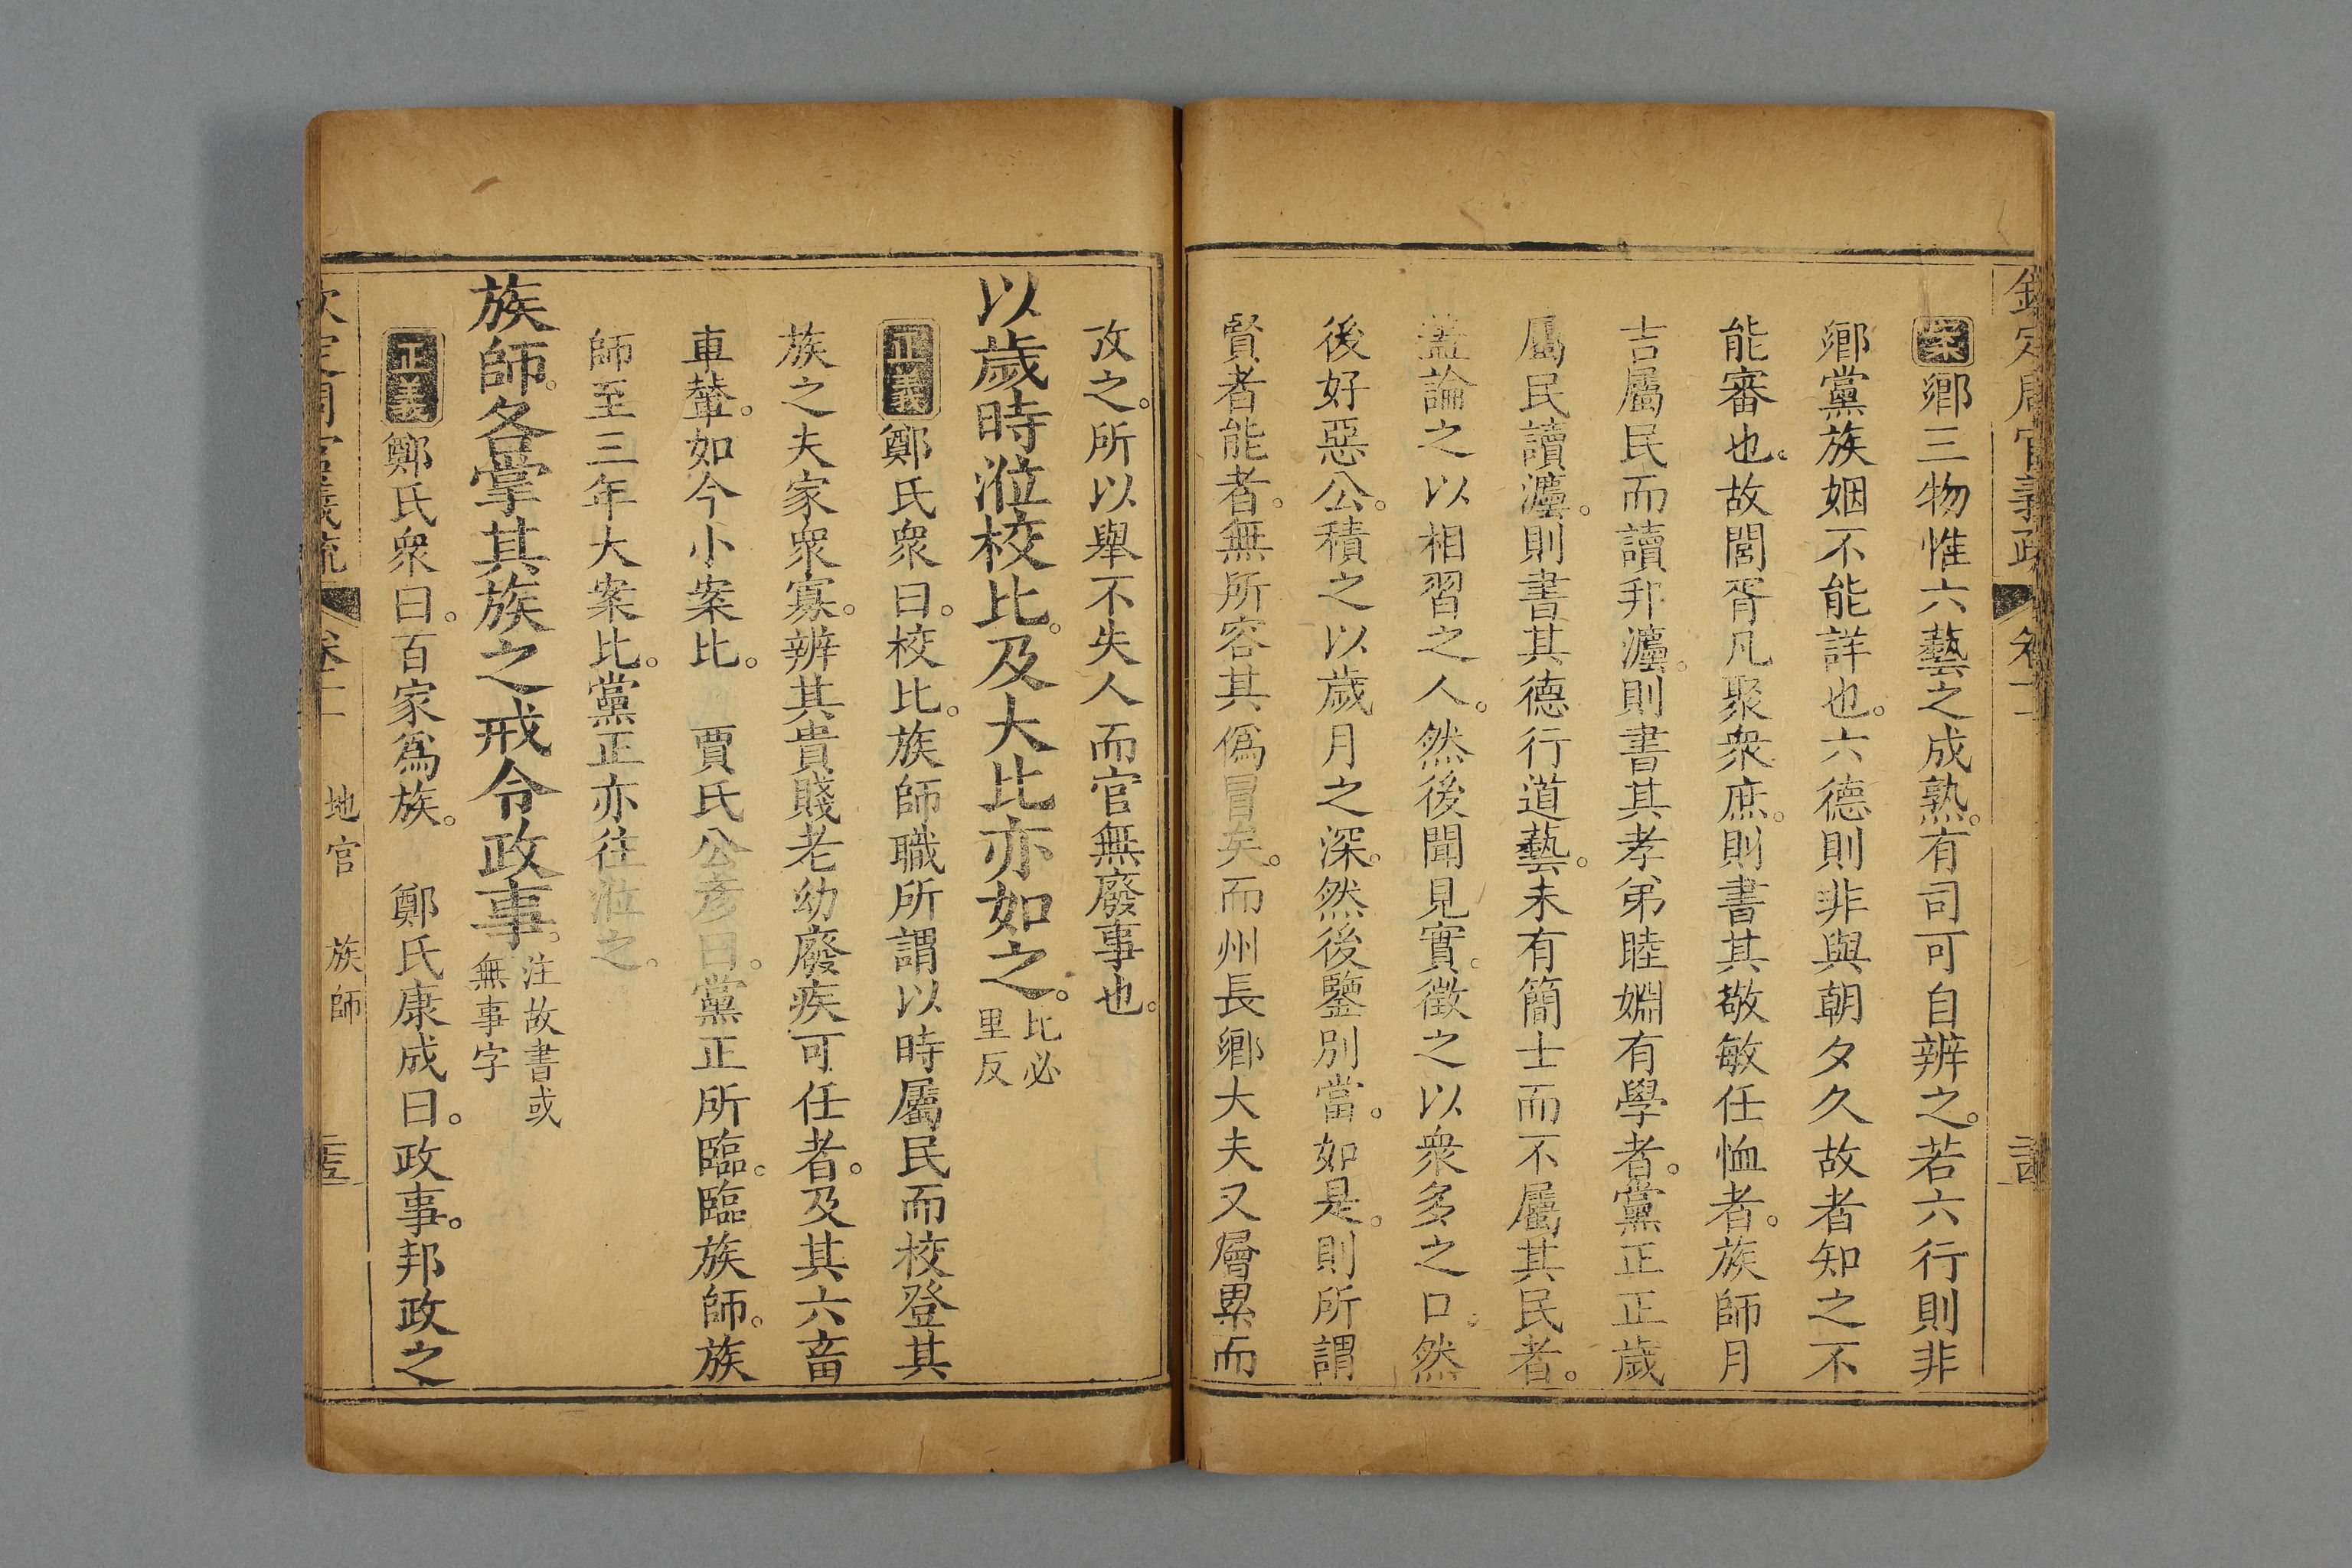 欽定周官義疏 卷十一
案鄉三物惟六藝之成熟。有司可自辨之。若六行則非
鄉黨族姻不能詳也。六德則非與朝夕久故者知之不
能審也。故閭胥凡聚衆庶。則書其敬敏任恤者。族師月
吉屬民而讀邦灋。則書其孝弟睦婣有學者。黨正正歲
屬民讀灋。則書其德行道藝。未有簡士而不屬其民者。
蓋論之以相習之人。然後聞見實。徵之以衆多之口。然
後好惡公。積之以歲月之深。然後鑒別當。如是。則所謂
賢者能者。無所容其僞冒矣。而州長鄉大夫又層累而
攷之。所以舉不失人而官無廢事也。
以歲時涖校比。及大比亦如之。比必
里反
正義鄭氏衆曰。校比。族師職所謂以時屬民而校登其
族之夫家衆寡。辨其貴賤老幼廢疾可任者。及其六畜
車輦。如今小案比。 賈氏公彥曰。黨正所臨。臨族師。族
師至三年大案比。黨正亦往涖之。
族師。各掌其族之戒令政事。注故書或
無事字
正義鄭氏衆曰。百家爲族。 鄭氏康成曰。政事。邦政之
欽定周官義疏 卷十一 地官 族師